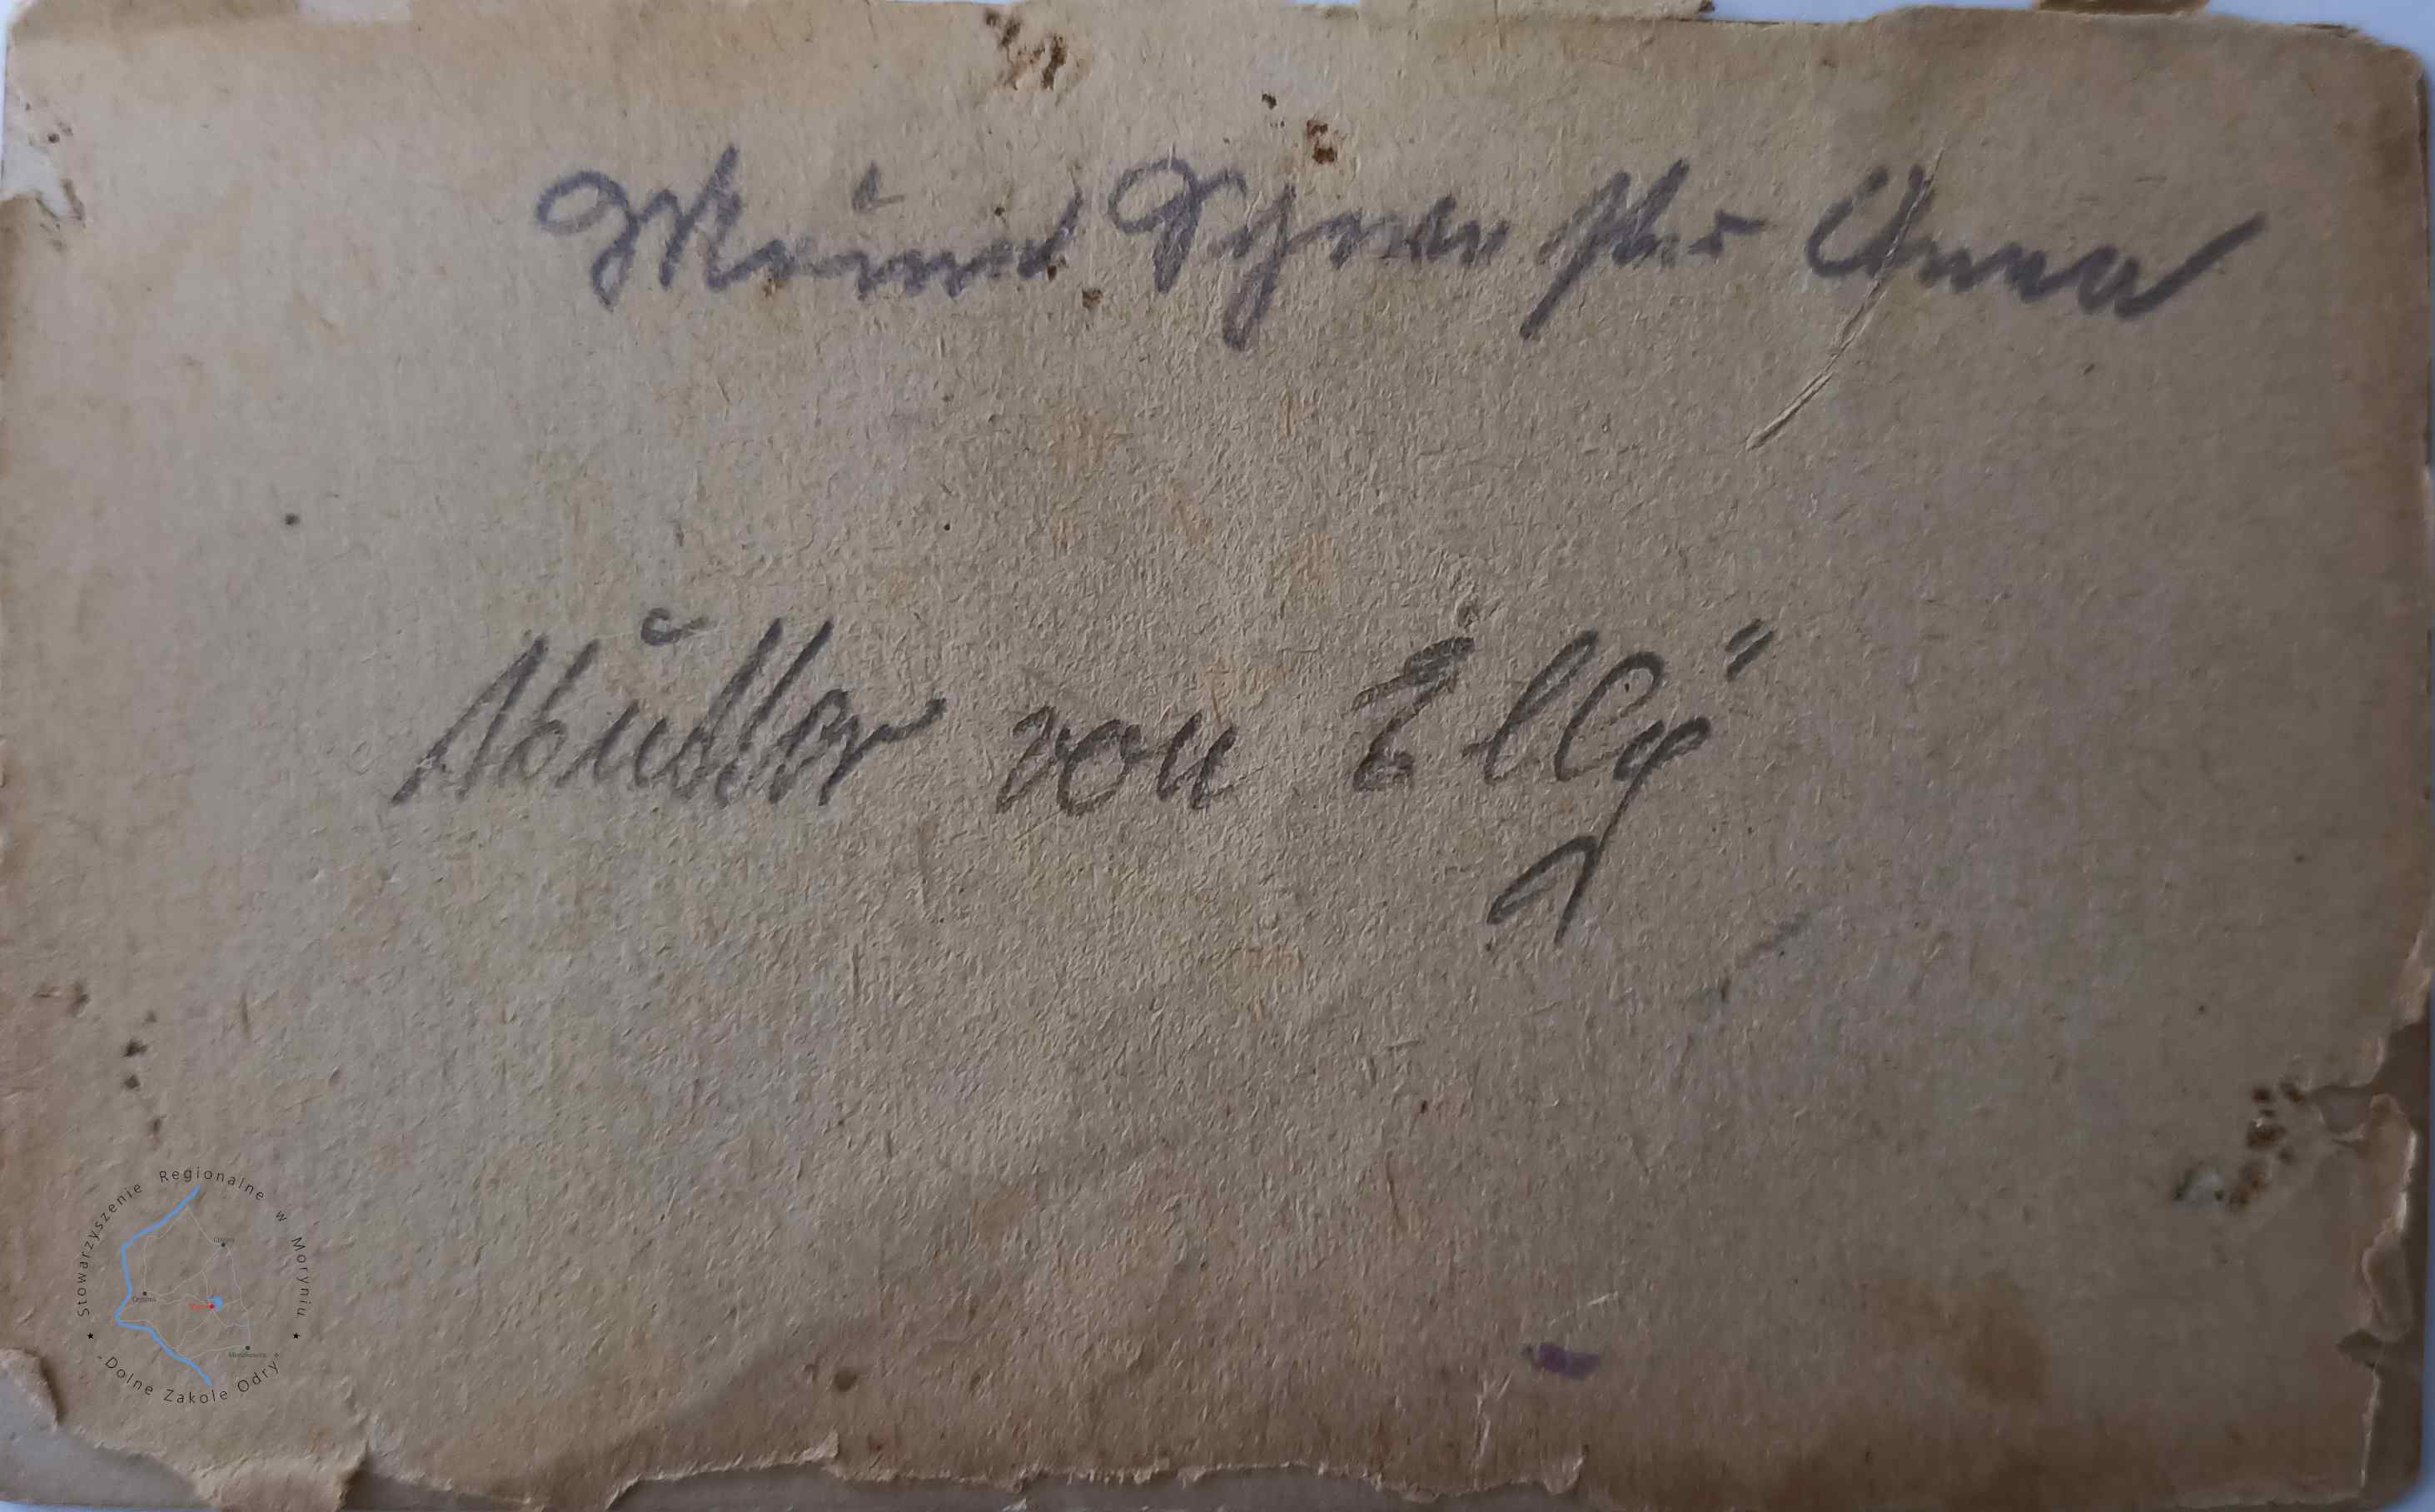 Meine Schwester Anna
Mutter von Elly
Stowarzyszenie Regionalne w Moryniu
"Dolne Zakole Odry"